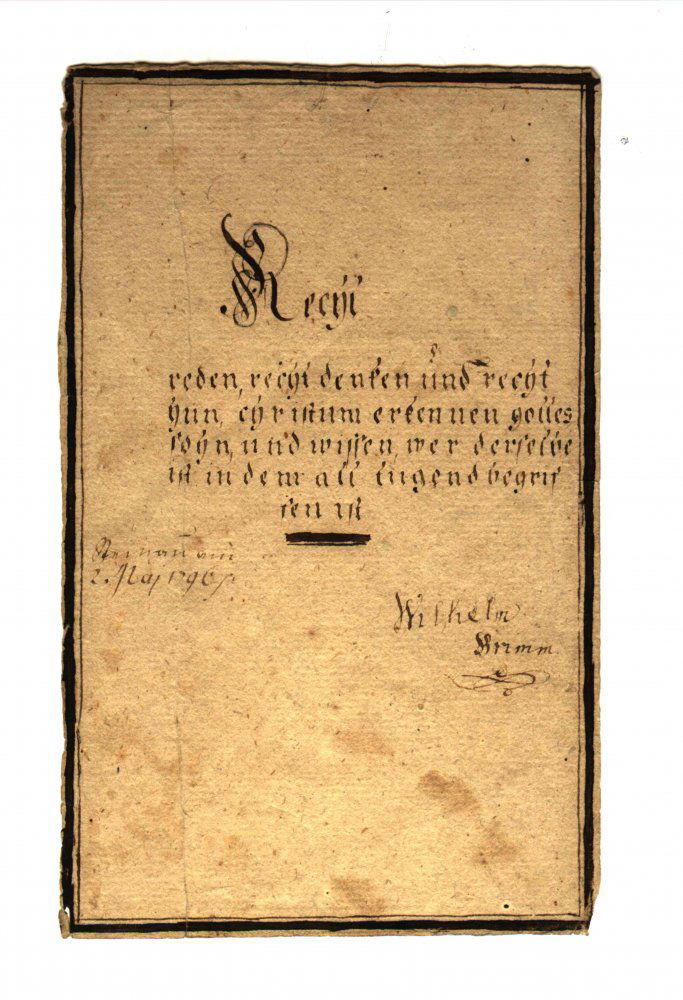 Recht
reden, recht denken und recht
thun, christum erkennen gottes
sohn, und wissen, wer derselbe
ist in dem all tugend begrif
fen ist
Steinau am
2. Maj 1796
Wilhelm
Grimm